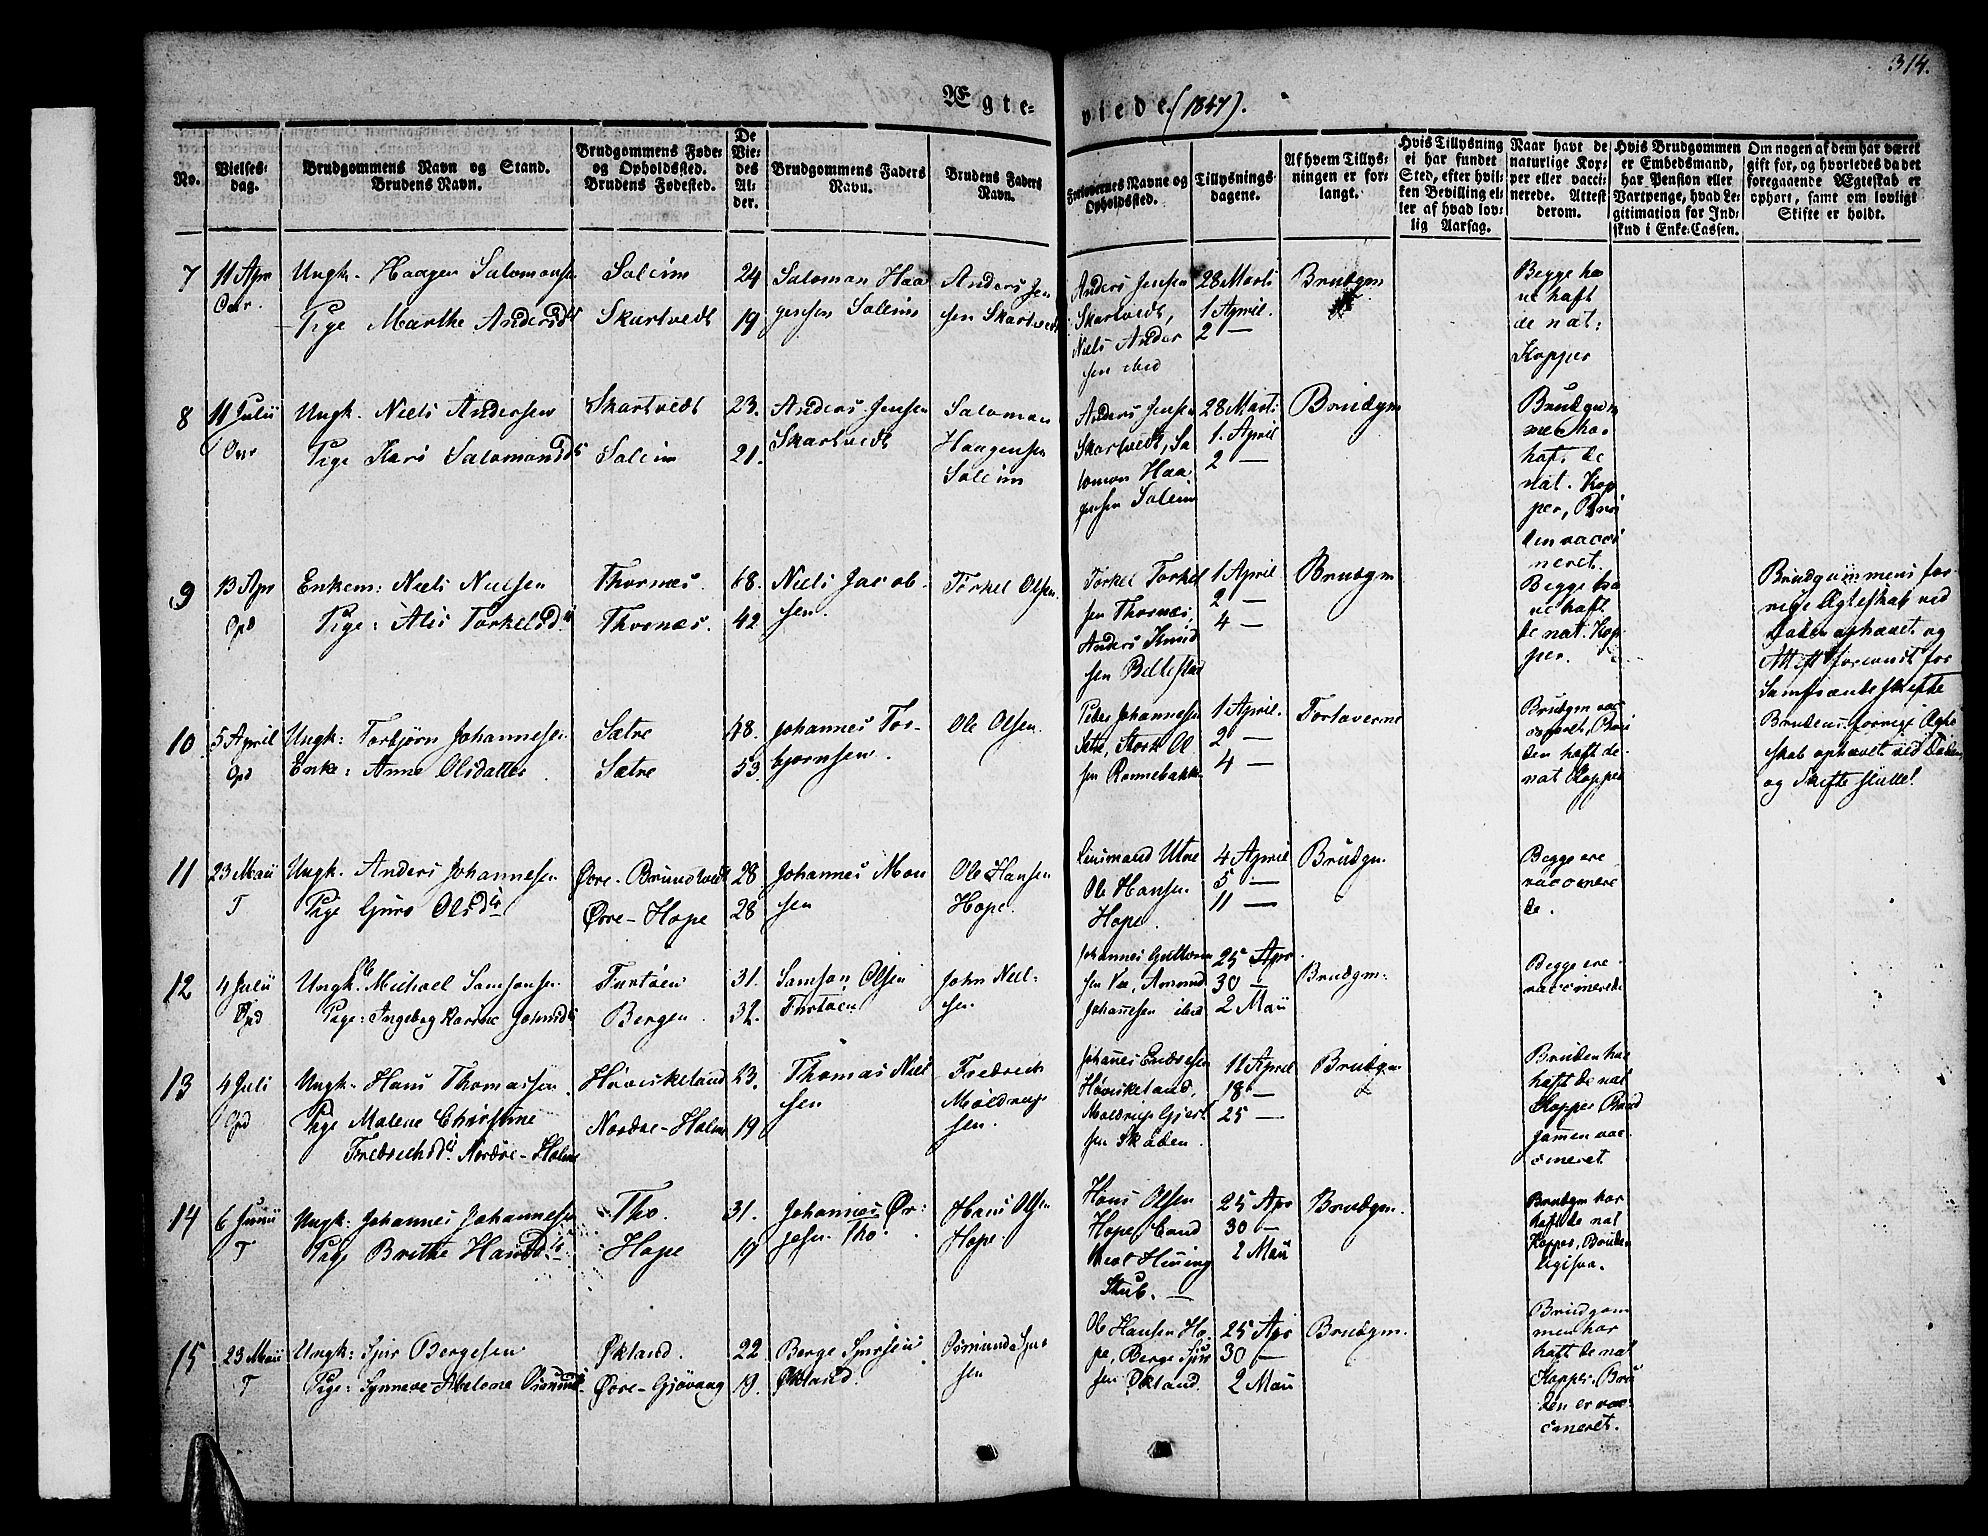 314.
Ægte-
viede. (1847).
No.
Vielses-
dag.
Brudgommens Navn og Stand.
Brudens Navn.
Brudgommens Føde-
og Opholdssted.
Brudens Fødested.
De
Vie-
des
Al-
der.
Brudgommens Faders
Navn.
Brudens Faders
Navn.
Forlovernes Navne og
Opholdssted.
Tillysnings-
dagene.
Af hvem Tillys-
ningen er for-
langt.
Hvis Tillysning
ei har fundet
Sted, efter hvil-
ken Bevilling el-
ler af hvad lov-
lig Aarsag.
Naar havt de
naturlige Kop-
per eller vacci-
nerede. Attest
derom.
Hvis Brudgommen
er Embedsmand,
har Pension eller
Vartpenge, hvad Le-
gitimation for Ind-
skud i Enke-Cassen.
Om nogen af dem har været
gift før, og hvorledes da det
foregaaende Ægteskab er
ophørt, samt om lovligt
Skifte er holdt.
7
11 Apr
Ungk. Haagen Salomonsen
Pige Marthe Andersd
Soleim
Skartvedt
24
19
Saloman Haa
gensen Soleim
Anders Jen
sen Skartvedt
Anders Jensen
Skartvedt,
Niels Ander
sen ibid
28 Marts
1 April.
2 —
Brudgm
Begge ha
ve haft
de nat:
Kopper
8
11 Julii
Ungk. Niels Andersen
Pige Kari Salomonsd
Skartvedt
Soleim
23.
21.
Anders Jensen
Skartvedt
Saloman
Haagensen
Soleim
Anders Jensen
Skartvedt, Sa
lomon Haa
gensen Soleim
28 Mart:
1. April
2 —
Brudgm
Brudgom
men har
haft de
nat. Kop
per, Bru
den vacci
neret.
9
13 Apr
Opd
Enkem: Niels Nielsen
Pige: Alis Torkelsd.
Thornæs.
Thornæs.
68.
42
Niels Jacob-
sen.
Torkel Olsen.
Torkel Torkel
sen Thornæs,
Anders Knud
sen Belleslad
1 April
2 —
4 —
Brudgm
Begge ha
ve haft
de nat. Kop
per.
Brudgummens for-
rige Ægteskab ved
Døden ophævet og
Attest foreviist for
Samfrændeskifte
10
5 April
Opd
Ungk: Torbjørn Johannesen
Enke: Anne Olsdatter
Sætre
Sætre
48.
53.
Johannes Tor-
bjørnsen.
Ole Olsen.
Peder Johannesen
Sætre, Stork Ol
sen Rønnebakk
1 April.
2 —
4 —
Forloverne
Brudgm vac
cineret, Bru
den haft de
nat Kopper
Brudens forrige Ægte
skab ophævet ved Døden
og Skifte sluttet.
11
23 Maii
T
Ungk. Anders Johannesen
Pige Guro Olsd
Øvre-Brundtvedt
Øvre-Hope
28
28
Johannes Mon
sen
Ole Hansen
Hope.
Lensmand Utne
Ole Hansen
Hope
4 April
5 —
11 —
Brudgm.
Begge ere
vaccinere
de.
12
4 Julii
Opd
Ungk. Michael Samsonsen
Pige: Ingeborg Karine Johnsd
Turtøen
Bergen
31.
32.
Samson Olsen
Turtøen
John Niel-
sen
Johannes Guttorm
sen Væ, Amund
Johannesen ibid
25 Apr.
30 —
2 Maii
Brudgm:
Begge ere
vaccinerede
13
4 Juli
Opd
Ungk. Hans Thomassen
Pige Malene Christine
Fredrechsd. Nordre-Holme
Høviskeland
Nordre-Holme
23.
19
Thomas Niel
sen
Fredrech
Moldrup
sen.
Johannes Endresen
Høviskeland,
Moldrup Gjert
sen Skaben.
11 April
18 —
25 —
Brudgm
Bruden har
haft de nat
Kopper Brud
gomen vac
cineret
14
6 Junii
T
Ungk: Johannes Johannesen
Pige Brithe Hansd
Tho.
Hope
31.
19
Johannes Ør:
jesen Tho.
Hans Olsen
Hope.
Hans Olsen
Hope, Cand
theol Hining
Stub. —
25 Apr
30 —
2 Maii
Brudgm.
Brudgm har
haft de nat
Kopper, Bruden
ligesaa.
15
23 Maii
T
Ungk: Sjur Bergesen
Pige: Synneve Abelone Osmunds
Økland.
Øvre-Gjøvaag
22
19.
Berge Sjursen
Økland.
Osmund Sjur
sen
Ole Hansen Ho
pe, Berge Sjur
sen Økland.
25 Apr
30 —
2 Maii
Brudgm.
Brudgom
men har
haft de nat
Kopper. Bru
den er vac-
cineret.